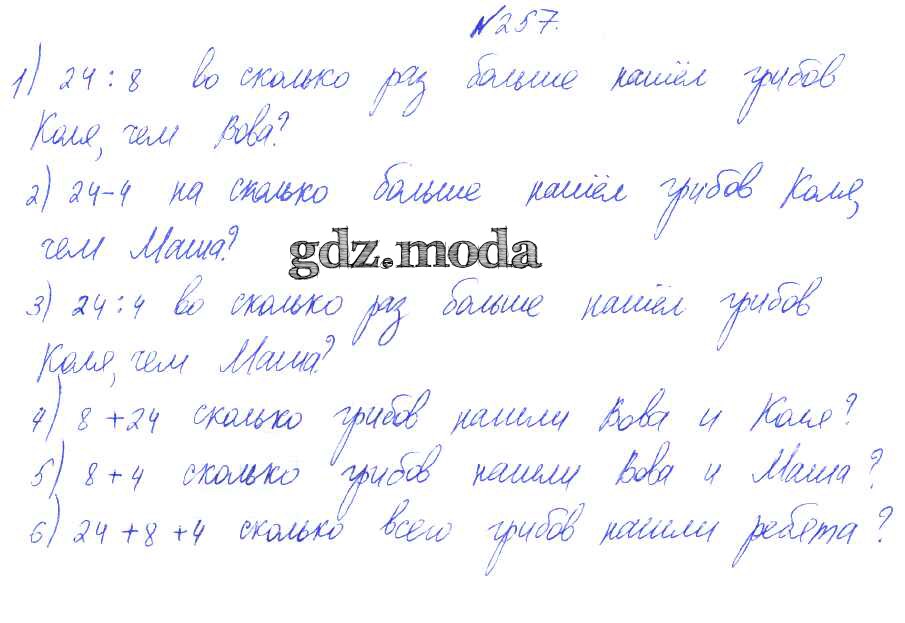 №257.
1) 24:8 во сколько раз больше нашёл грибов
Коля, чем Вова?
2) 24-4 на сколько больше нашёл грибов Коля,
чем Маша?
gdz.moda
3) 24:4 во сколько раз больше нашёл грибов
Коля, чем Маша?
4) 8+24 сколько грибов нашли Вова и Коля?
5) 8+4 сколько грибов нашли Вова и Маша?
6) 24+8+4 сколько всего грибов нашли ребята?